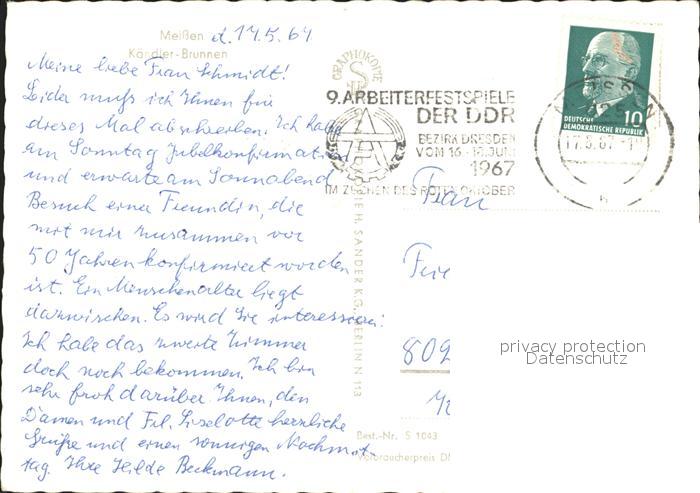 Meißen d. 17.5.67
Kändler-Brunnen
Meine liebe Frau Schmidt!
Leider muß ich Ihnen für
dieses Mal abschreiben. Ich habe
am Sonntag Jubelkonfirmation
und erwarte am Sonnabend
Besuch einer Freundin, die
mit mir zusammen vor
50 Jahren konfirmiert worden
ist. Ein Menschenalter liegt
dazwischen. Es wird Sie interessieren:
Ich habe das zweite Zimmer
doch noch bekommen. Ich bin
sehr froh darüber. Ihnen, den
Damen und Frl. Liselotte herzliche
Grüße und einen sonnigen Nachmit-
tag. Ihre Hilde Beckmann.
GRAPHOKOPIE
H. SANDER KG, BERLIN N 113
9. ARBEITERFESTSPIELE
DER DDR
BEZIRK DRESDEN
VOM 16.-18. JUNI
1967
IM ZEICHEN DES ROTEN OKTOBER
10
DEUTSCHE
DEMOKRATISCHE REPUBLIK
17.5.67
h
Frau
809
privacy protection
Datenschutz
Best.-Nr. S 1043
Verbraucherpreis